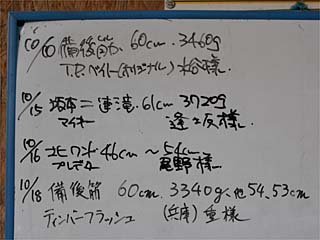 10/10 備後筋 60cm. 3460g
T.D.ベイト(オリジナル) 水谷様.
10/15 坂本ニ連滝. 61cm 3720g
マイキー 逢坂様.
10/16 北ワンド 46cm ～ 54cm
プレデター 尾野様.
10/18 備後筋 60cm. 3340g、他 54、53cm
ティンバーフラッシュ (兵庫) 重様